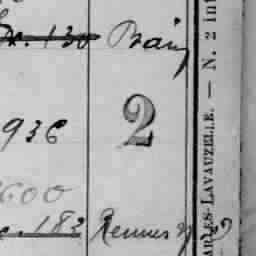 130
2
936
600
c. 183 Rennes
ARLES-LAVAUZELLE. — N. 2 in